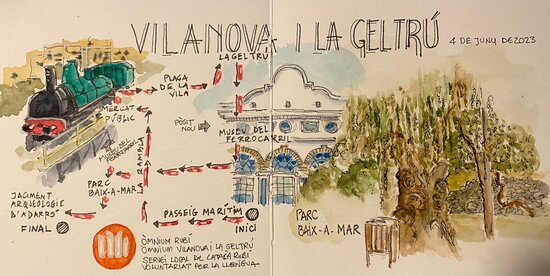 VILANOVA I LA GELTRÚ
4 DE JUNY DE 2023
LA GELTRÚ
PLAÇA
DE LA
VILA
MERCAT
PÚBLIC
PÒSIT
NOU
MUSEU DEL
FERROCARRIL
LA RAMBLA
PARC
BAIX-A-MAR
JACIMENT
ARQUEOLÒGIC
D'ADARRÓ
FINAL
PASSEIG MARÍTIM
INICI
PARC
BAIX-A-MAR
ÒMNIUM RUBÍ
ÒMNIUM VILANOVA I LA GELTRÚ
SERVEI LOCAL DE CATALÀ RUBÍ
VOLUNTARIAT PER LA LLENGUA